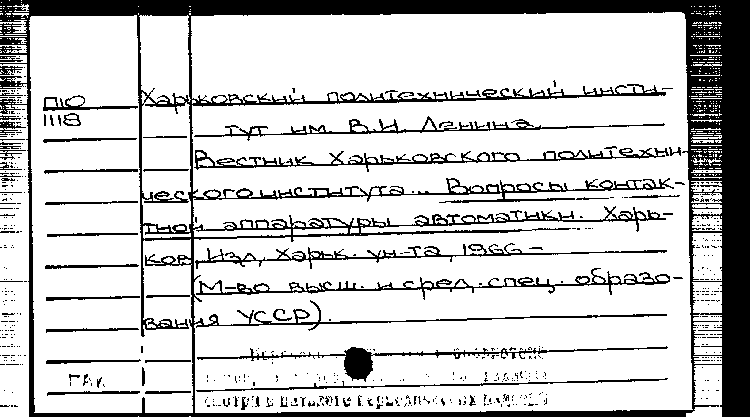 П10
1118
Харьковский политехнический инсти-
тут им. В.И. Ленина
Вестник Харьковского политехни-
ческого института... Вопросы контак-
тной аппаратуры автоматики. Харь-
ков, Изд, Харьк. ун-та, 1966 -
(М-во высш. и сред. спец. образо-
вания УССР).
смотри в каталоге периодических изданий